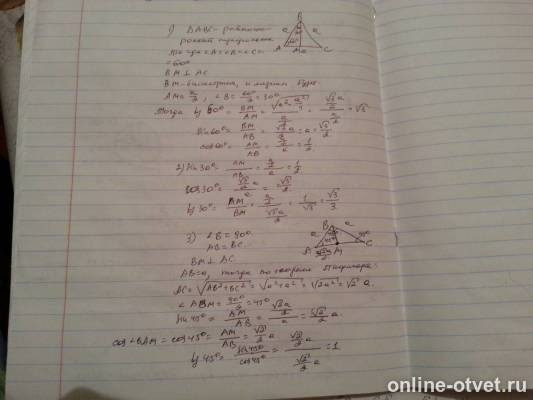 1) ΔABC - равносто-
ронний треугольник
Тогда ∠A=∠B=∠C=
=60°
BM ⊥ AC
BM - биссектриса, и медиана
AM = a/2, ∠B = 60°/2 = 30°
Тогда tg 60° = BM/AM = √(a²-a²/4) / (a/2) = (√3/2 a) / (a/2) = √3
sin 60° = BM/AB = (√3/2 a) : a = √3/2
cos 60° = AM/AB = (a/2)/a = 1/2
2) sin 30° = AM/AB = (a/2)/a = 1/2
cos 30° = (√3/2 a)/a = √3/2
tg 30° = AM/BM = (a/2)/(√3/2 a) = 1/√3 = √3/3
3) ∠B = 90°
AB = BC
BM ⊥ AC
AB = a, тогда по теореме Пифагора:
AC = √(AB²+BC²) = √(a²+a²) = √(2a²) = √2 a.
∠ABM = 90°/2 = 45°
sin 45° = AM/AB = (√2/2 a)/a = √2/2
cos∠BAM = cos 45° = AM/AB = √2/2
tg 45° = sin 45°/cos 45° = (√2/2 a)/(√2/2 a) = 1
online-otvet.ru